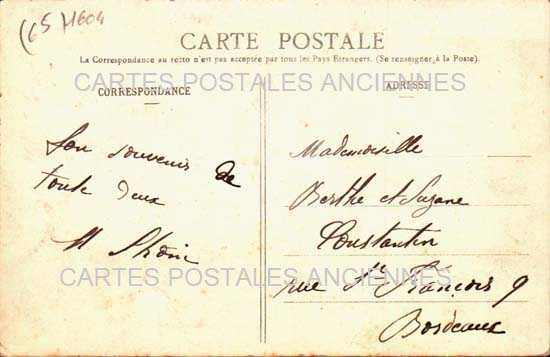 (65) 11604
CARTE POSTALE
La Correspondance au recto n'est pas acceptée par tous les Pays Étrangers. (Se renseigner à la Poste).
CARTES POSTALES ANCIENNES
CORRESPONDANCE
ADRESSE
Bon souvenir de
toute deux
M
Mademoiselle
Berthe et Suzane
Constantin
rue Ste François 9
Bordeaux
CARTES POSTALES ANCIENNES